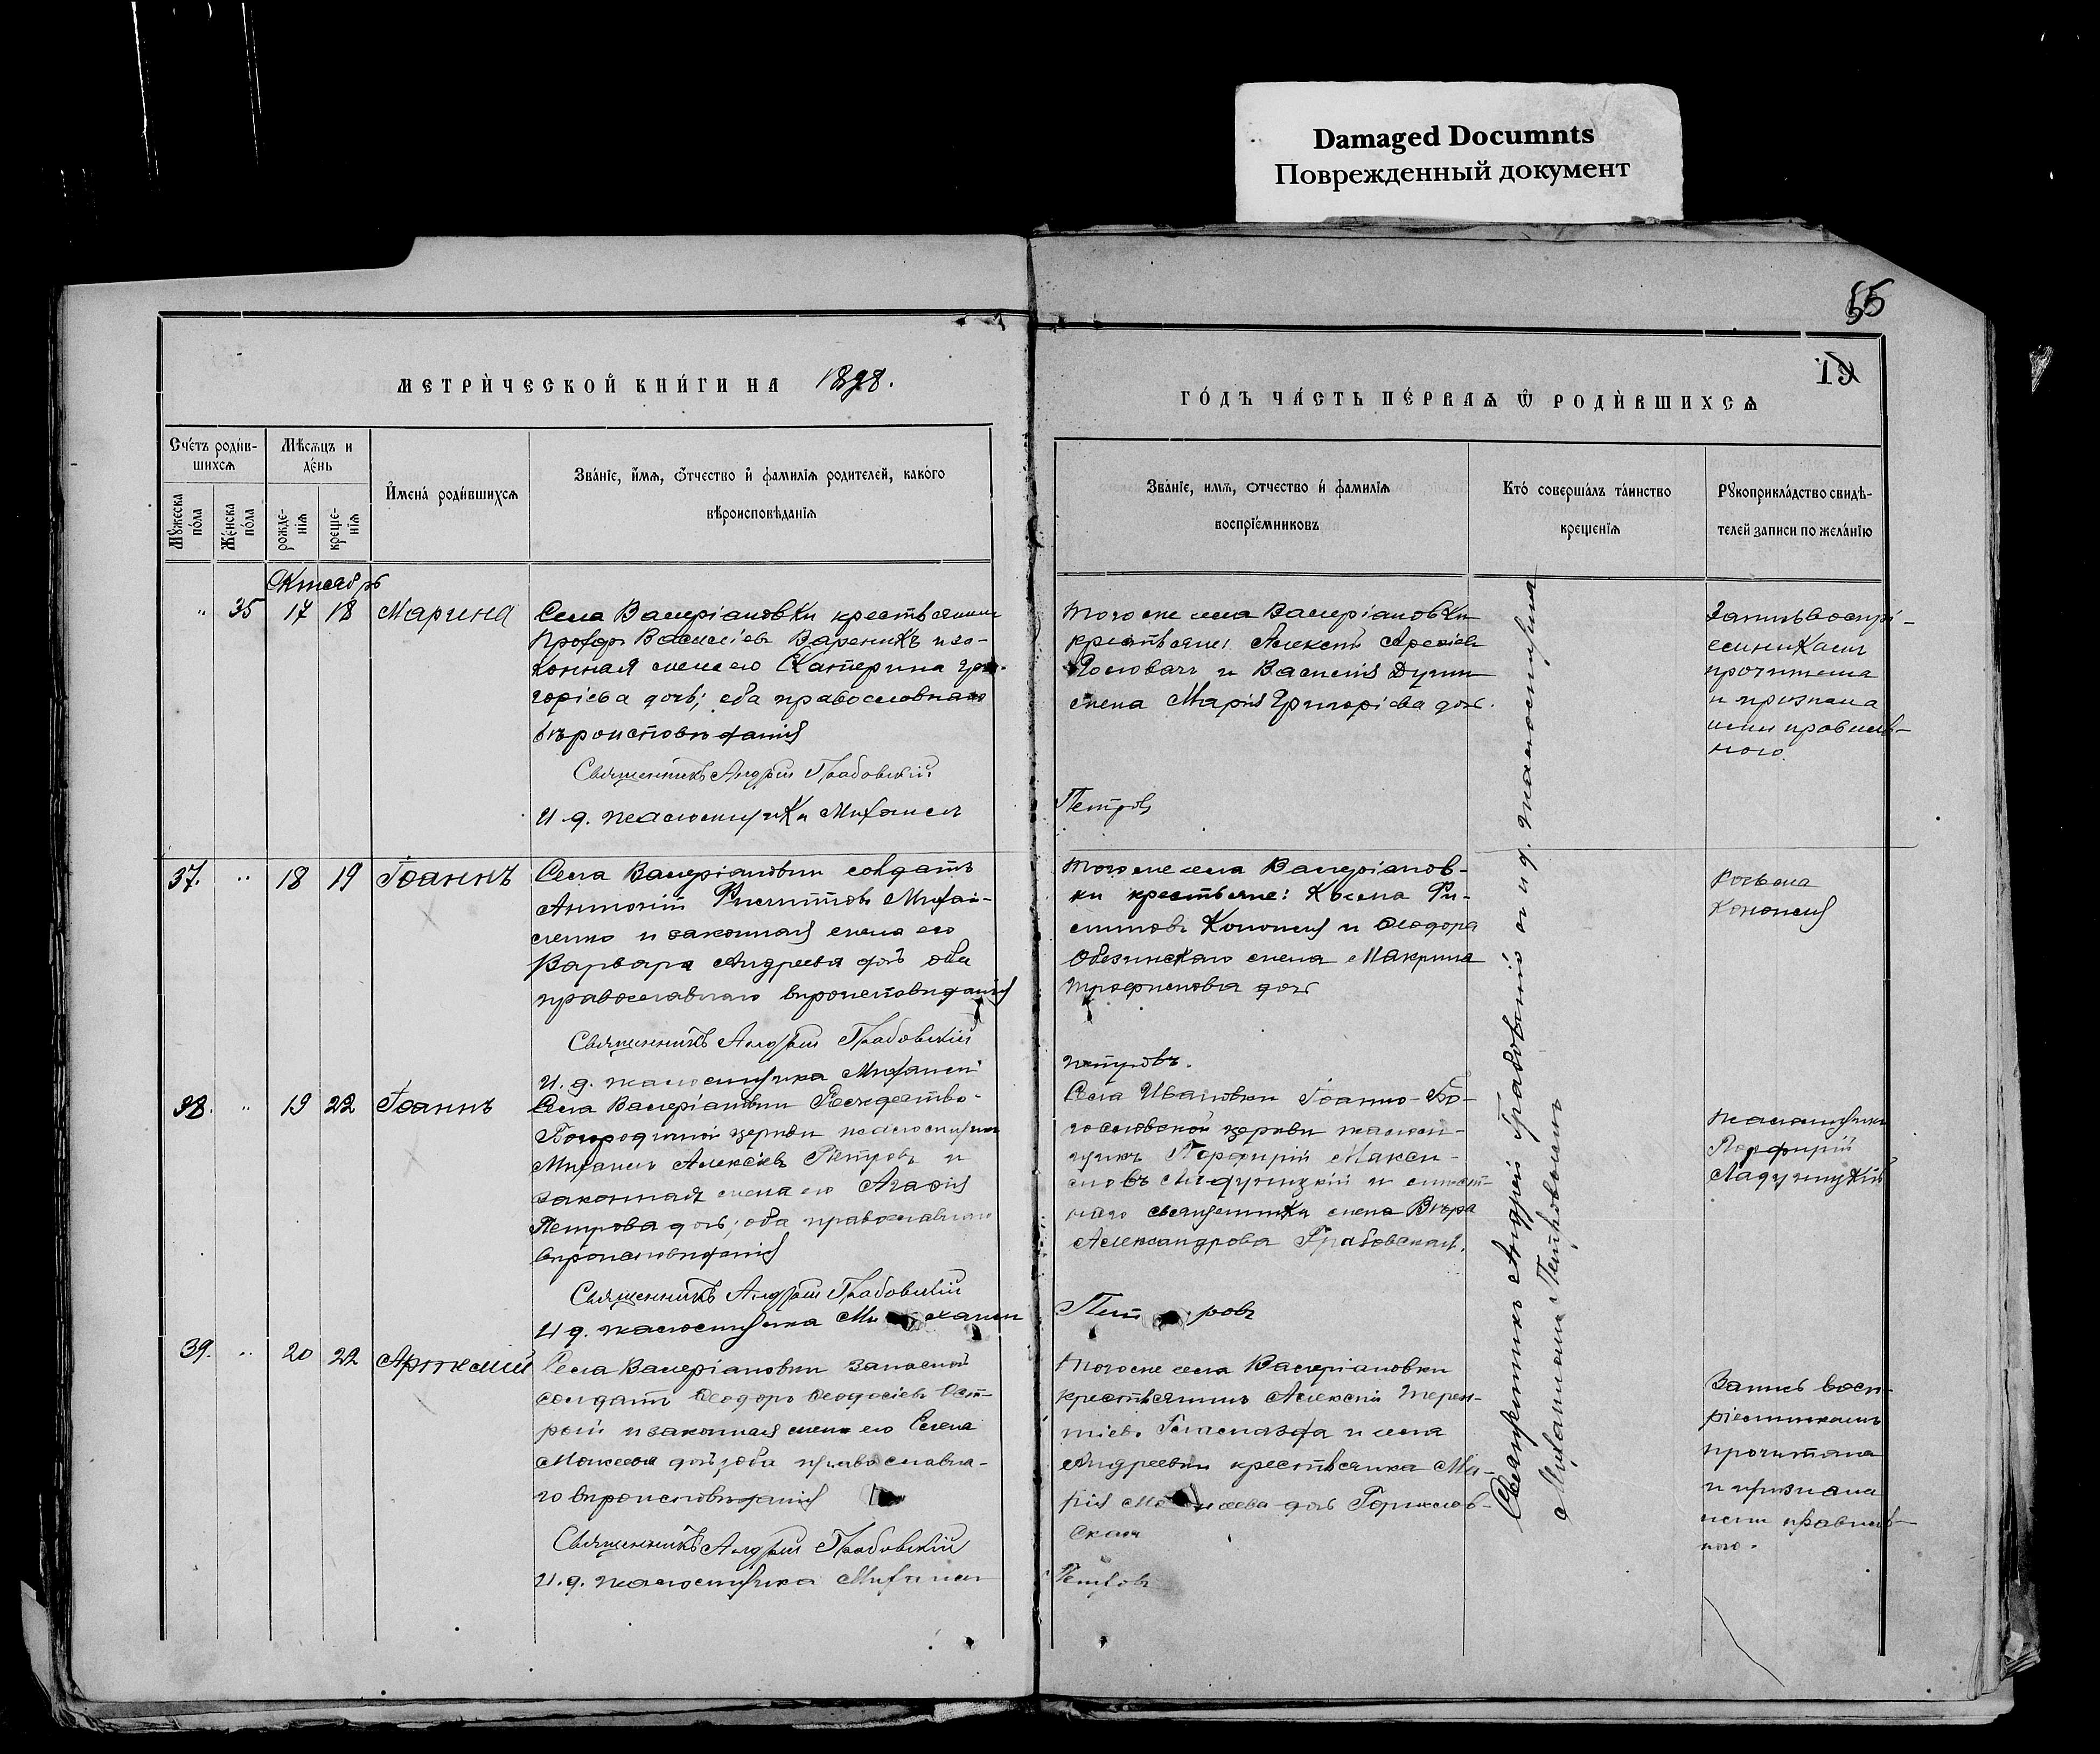 Damaged Documnts
Поврежденный документ
55
19
МЕТРИ́ЧЕСКОЙ КНИ́ГИ НА 1898.
ГО́ДЪ ЧА́СТЬ ПЕ́РВАѦ Ѡ РОДИ́ВШИХСѦ
Сче́тъ роди́в-
шихсѧ
Мꙋжеска
по́ла
Же́нска
по́ла
Мѣсѧцъ и
де́нь
рожде-
нїѧ
креще-
нїѧ
И҆мена́ роди́вшихсѧ
Зва́нїе, и҆́мѧ, ѻ҆́тчество и҆ фамилїѧ родителей, како́го
вѣроисповѣ́данїѧ
Зва́нїе, имѧ, ѻтчество и҆ фамилїѧ
воспрїе́мниковъ
Кто́ соверша́лъ та́инство
креще́нїѧ
Рꙋкоприкла́дство свидѣ́-
телей записи по жела́нїю
Октябрь
" 35 17 18 Марина
Села Валеріановки крестьянинъ
Василіевъ Вареникъ и за-
конная жена его Екатерина Гри-
горіева дочь; оба православнаго
вѣроисповѣданія
Священникъ Андрей Грабовскій
И. д. псаломщика Михаилъ
Тогоже села Валеріановки
крестьяне: Алексей
и жена Марія Григоріева дочь.
Петровъ
Запись воспрі-
емникамъ
прочитана
и признана
ими правиль-
ною
37. " 18 19 Іоаннъ
Села Валеріановки солдатъ
Антоній Филипповъ Михай-
ленко и законная жена его
Варвара Андреева дочь оба
православнаго вѣроисповѣданія
Священникъ Андрей Грабовскій
И. д. псаломщика Михаилъ
Тогоже села Валеріанов-
ки крестьяне: Косма Фи-
липповъ Кононецъ и Ѳеодора
жена Макрина
Трофимова дочь
Петровъ.
Косьма
38. " 19 22 Іоаннъ
Села Валеріановки Рождество-
Богородичной церкви псаломщикъ
Михаилъ Алексѣевъ Петровъ и
законная жена его Агафія
Петрова дочь; оба православнаго
вѣроисповѣданія
Священникъ Андрей Грабовскій
И. д. псаломщика Михаилъ
Села Ивановки Іоанно-Бо-
гословской церкви псалом-
щикъ Порфирій Макси-
мовъ Ладужицкій и мѣст-
наго священника жена Вѣра
Александрова Грабовская.
Петровъ
Псаломщикъ
Порфирій
Ладужицкій
39. " 20 22 Артемій
Села Валеріановки запасной
солдатъ Ѳеодоръ Ѳеодосіевъ Ост-
рый и законная жена его Елена
Моисеева дочь, оба православна-
го вѣроисповѣданія
Священникъ Андрей Грабовскій
И. д. псаломщика Михаилъ
Тогоже села Валеріановки
крестьянинъ Алексій Терен-
тіевъ и села
Андреевки крестьянка Ма-
рія Моисеева дочь
ская
Петровъ
Запись восп-
ріемникамъ
прочитана
и признана
ими правиль-
ною.
Священникъ Андрей Грабовскій съ и. д. псаломщика
Михаиломъ Петровымъ